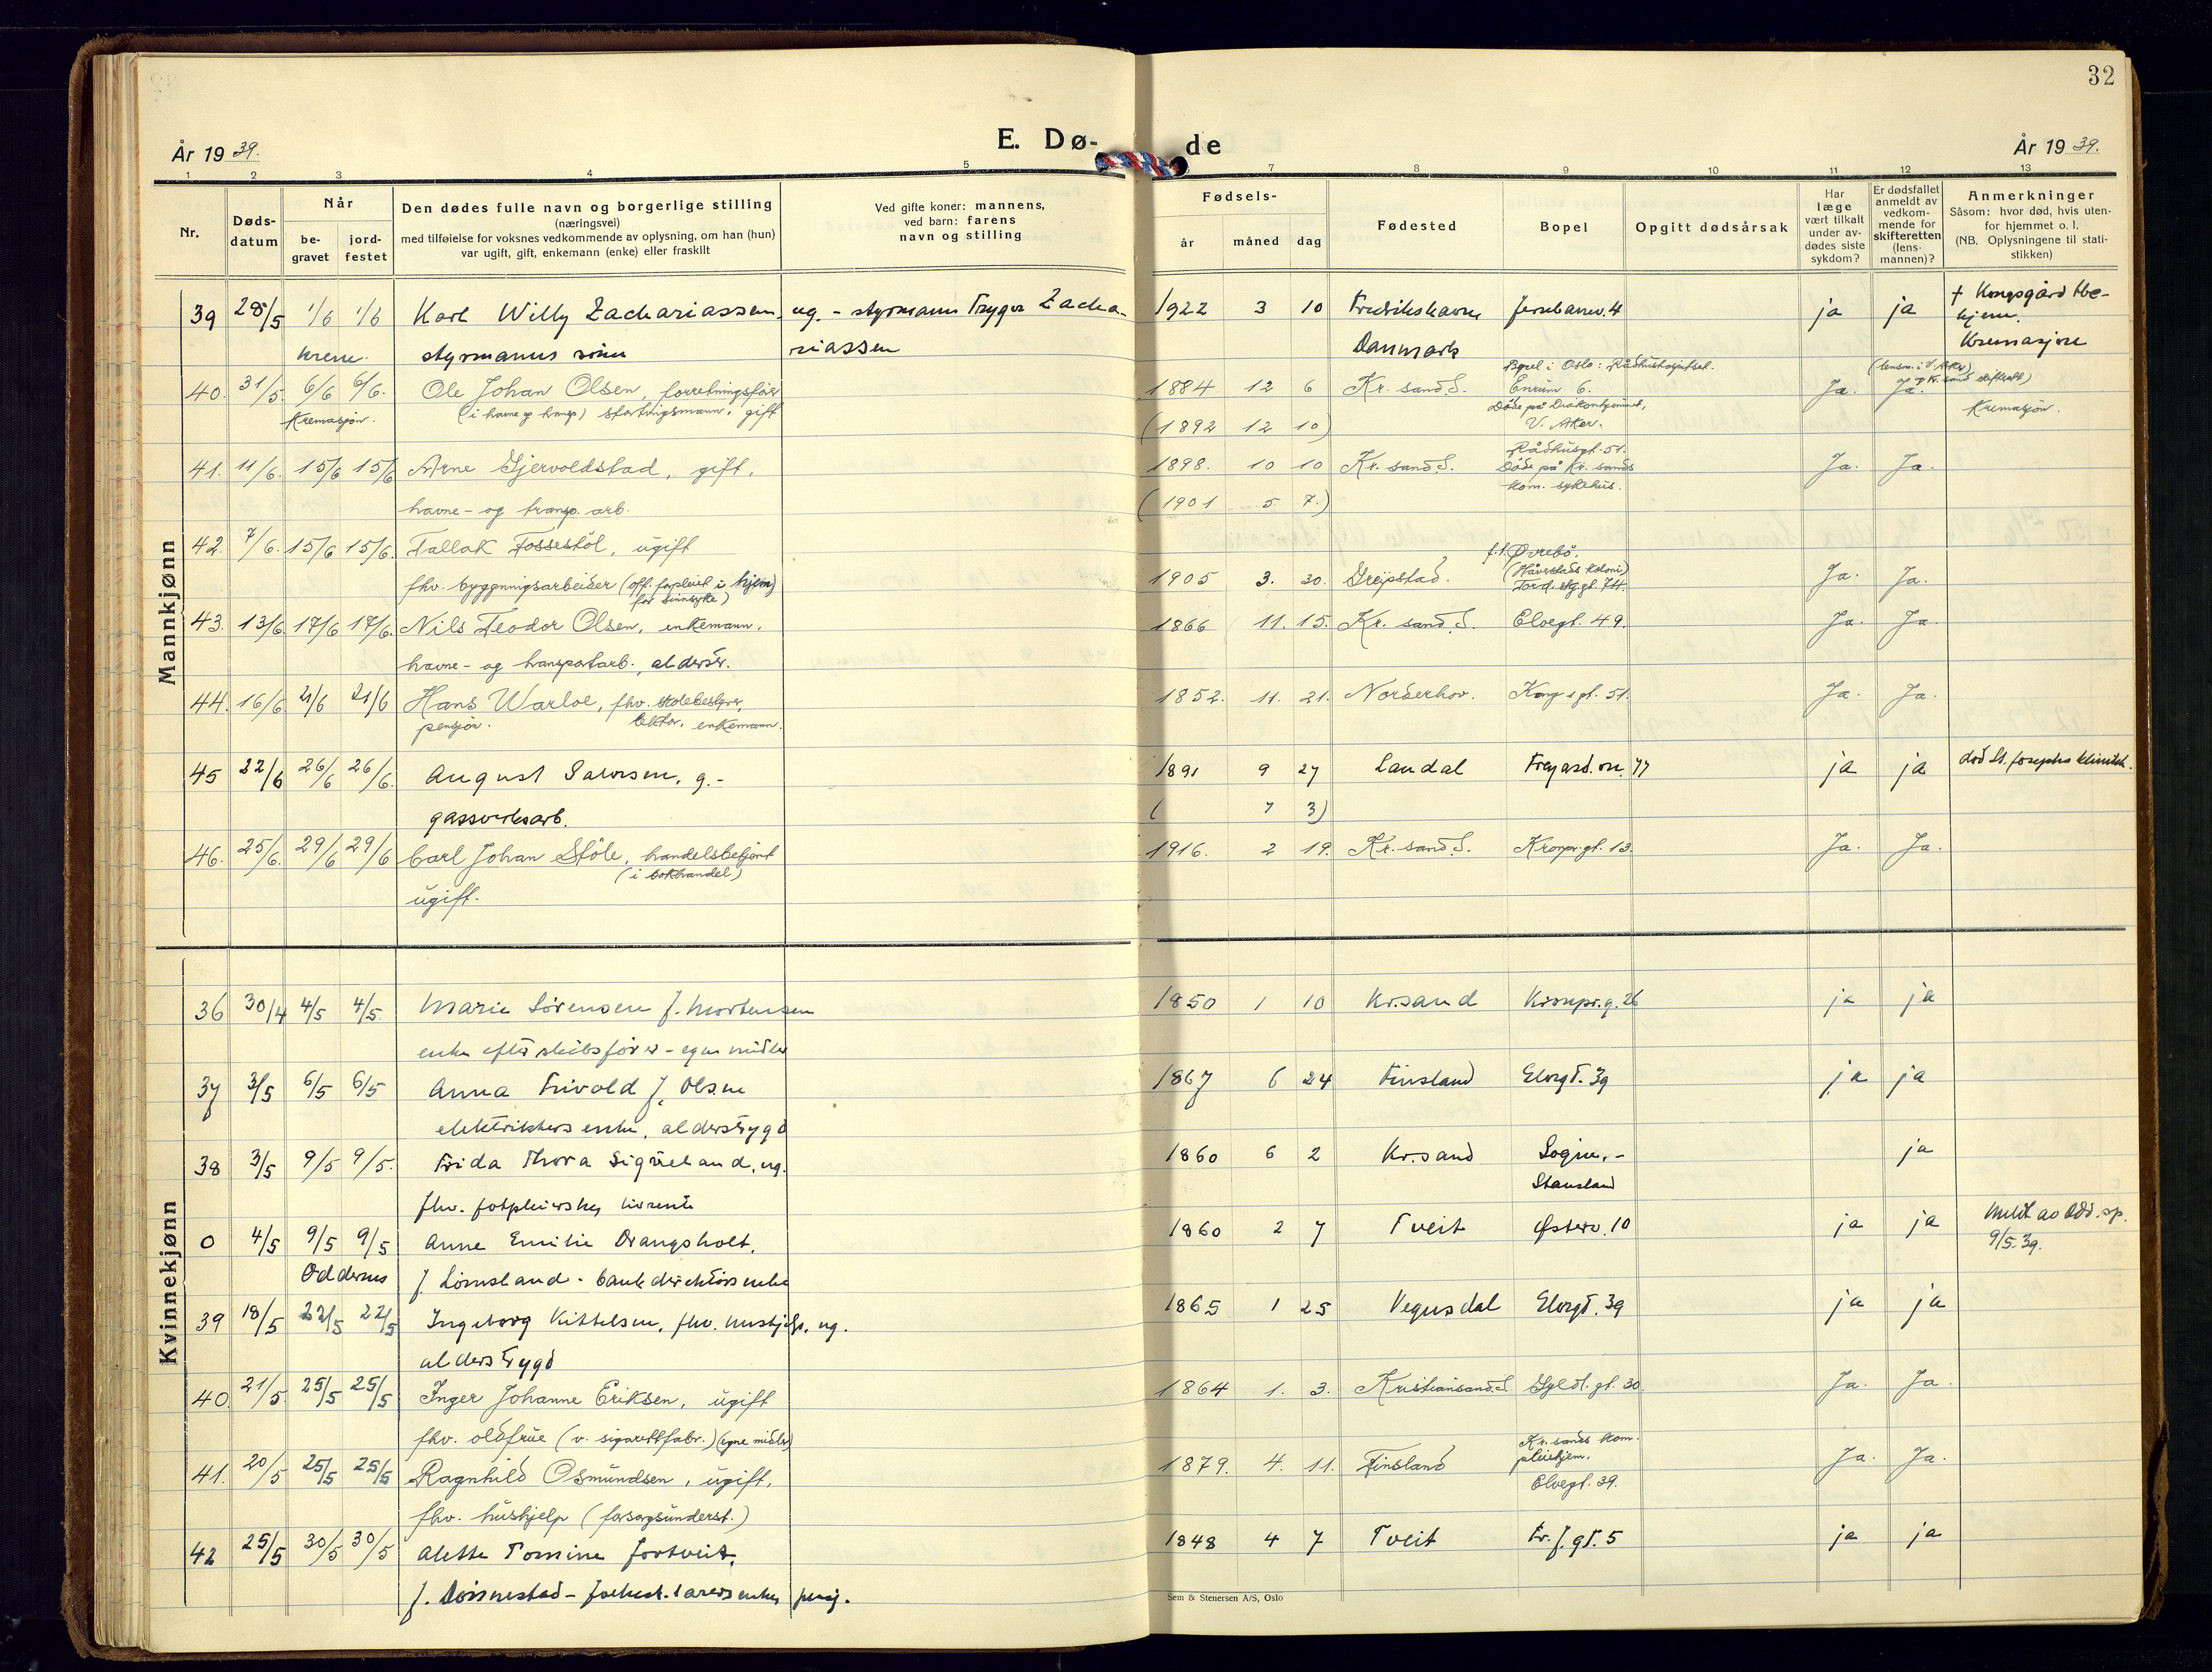 32
År 1939.
E. Dø-
de
År 1939.
1 2 3 4 5 6 7 8 9 10 11 12 13
Nr.
Døds-
datum
Når
be-
gravet
jord-
festet
Den dødes fulle navn og borgerlige stilling
(næringsvei)
med tilføielse for voksnes vedkommende av oplysning, om han (hun)
var ugift, gift, enkemann (enke) eller fraskilt
Ved gifte koner: mannens,
ved barn: farens
navn og stilling
Fødsels-
år måned dag
Fødested
Bopel
Opgitt dødsårsak
Har
læge
vært tilkalt
under av-
dødes siste
sykdom?
Er dødsfallet
anmeldt av
vedkom-
mende for
skifteretten
(lens-
mannen)?
Anmerkninger
Såsom: hvor død, hvis uten-
for hjemmet o. l.
(NB. Oplysningene til stati-
stikken)
Mannkjønn
39 28/5 1/6 1/6 Karl Willy Zachariassen, ug. - styrmann Trygve Zacha- 1922 3 10 Fredrikshavn ja ja † Kongsgård tbc-
hjem.
krem. styrmanns sønn riassen Danmark Kremasjon
Bopel i Oslo: Rådhushospitset.
40. 31/5. 6/6 6/6. Ole Johan Olsen, forretningsfører 1884 12 6 Kr. sand S. Enrum 6. Ja. Ja. (lensm. i V. Aker)
og Kr. sand skifterett)
Kremasjon. (i havne og transp) stortingsmann, gift Døde på Diakonhjemmet, Kremasjon.
(1892 12 10) V. Aker.
Rådhusgt. 51.
41. 11/6. 15/6 15/6 Arne Gjervoldstad, gift, 1898. 10 10 Kr. sand S. Døde på Kr. sands Ja. Ja.
kom. sykehus.
havne- og transp. arb. (1901 5 7.)
42. 7/6. 15/6 15/6. Tallak Fossestøl, ugift
f.t. Øvrebø.
(Håverstads koloni)
fhv. byggningsarbeider (off. forpleiet i hjem) 1905 3. 30. Greipstad. Tord. skj gt. 74. Ja. Ja.
for sinnsyke)
43. 13/6 17/6 17/6. Nils Teodor Olsen, enkemann. 1866 11. 15. Kr. sand S. Elvegt. 49. Ja. Ja.
havne- og transportarb. alderstr.
44. 16/6 21/6 21/6 Hans Warloe, fhv. skolebestyrer, 1852. 11. 21. Norderhov. Kongsgt. 51. Ja. Ja.
pensjon. lektor, enkemann.
45 22/6 26/6 26/6. August g.- 1891 9 27 Laudal 77 ja ja død St. Josephs klinikk.
gassverksarb. ( 7 3)
46. 25/6. 29/6 29/6 Carl Johan Støle, handelsbetjent 1916. 2 19. Kr. sand S. Kronpr. gt. 13. Ja. Ja.
(i bokhandel)
ugift.
Kvinnekjønn
36 30/4 4/5 4/5. Marie Sørensen f. Mortensen 1850 1 10 Kr.sand Kronpr.g. 26 ja ja
enke efter skibsfører - egne midler
37 3/5 6/5 6/5 Anna Trivold f. Olsen 1867 6 24 Finsland Elvegt. 39 ja ja
elektrikers enke, alderstrygd
38 3/5 9/5 9/5. Frida Thora Sigveland, ug. 1860 6 2 Kr.sand Søgne.- ja
fhv. fotpleierske, livrente Stausland
0 4/5 9/5 9/5 Anne Emilie Drangsholt, 1860 2 7 Tveit Østerv. 10 ja ja meldt av Odd. sp.
9/5-39.
Oddernes f. Lømsland - bankdirektørs enke
39 18/5 22/5 22/5 Ingeborg Kittelsen, fhv. hushjelp, ug. 1865 1 25 Vegusdal Elvegt. 39 ja ja
alderstrygd
40. 21/5. 25/5 25/5 Inger Johanne Eriksen, ugift 1864 1. 3. Kristiansand S. Gyldl. gt. 30. Ja. Ja.
fhv. oldfrue (v. sigarettfabr.) (egne midler)
Kr. sands kom.
41. 20/5 25/5 25/5 Ragnhild Osmundsen, ugift, 1879. 4. 11. Finsland pleiehjem. Ja. Ja.
Elvegt. 39.
fhv. hushjelp (forsorgsunderst.)
42 25/5 30/5 30/5 Alette Tomine Jortveit, 1848 4 7 Tveit Fr. f. gt. 5 ja ja
f. Dønnestad - folkesk. lærers enke, pensj.
Sem & Stenersen A/S, Oslo